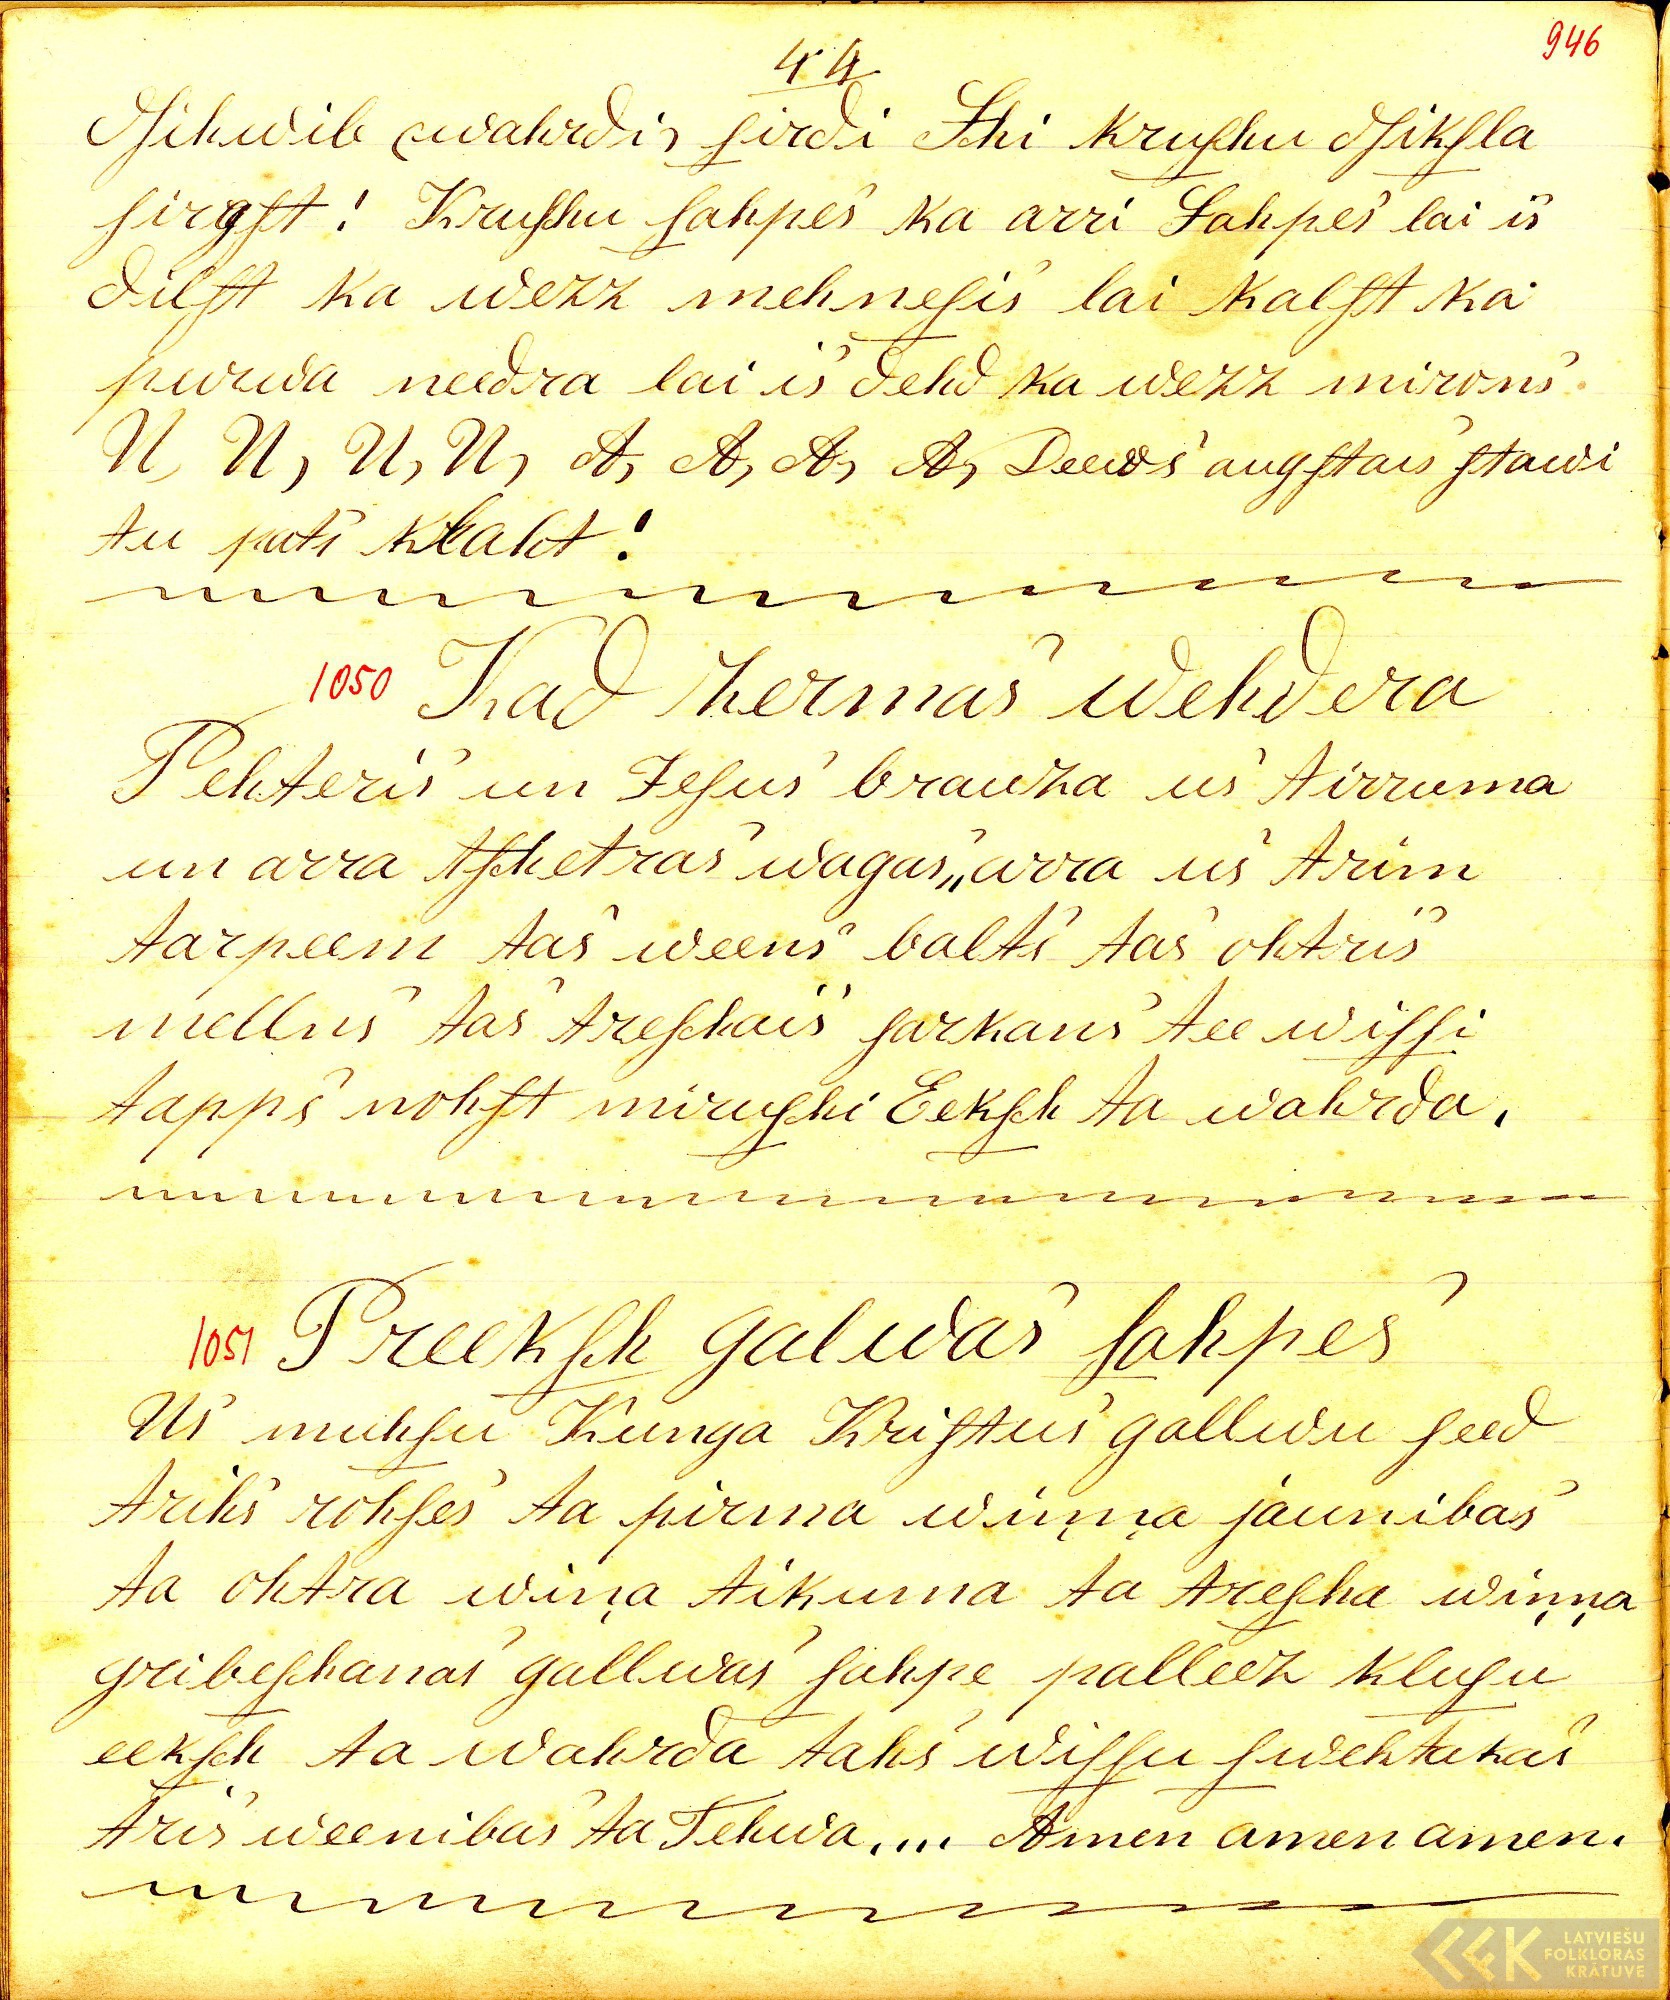 946
44
dsihwib (wahrdi) sirdi Schi kruschu dsiksla
sirgst! Kruschu sahpes ka arri Sahpes lai is
dilst ka wezz mehnesis lai kalst ka
purwa needra lai is dehd ka wezz mirons.
N, N, N, N, A, A, A, A, Deews augstais stawi
tu pats klaht!
1050 Kad zermas wehdera
Pehteris un Jesus brauza us tirruma
un arra tschetras wagas,, arra us trim
tarpeem tas weens balts tas ohtris
mellns tas treschais sarkans tee wissi
tapps nohst miruschi Eeksch ta wahrda.
1051 Preeksch galwas sahpes
Us muhsu Kunga Kristus gallwu seed
trihs rohses ta pirma winņa jaunibas
ta ohtra wiņa tikuma ta trescha wiņņa
gribeschanas gallwas sahpe palleez klusu
eeksch ta wahrda tahs wissu swehtakas
tris weenibas ta Tehwa.... Amen amen amen.
LATVIEŠU
FOLKLORAS
KRĀTUVE